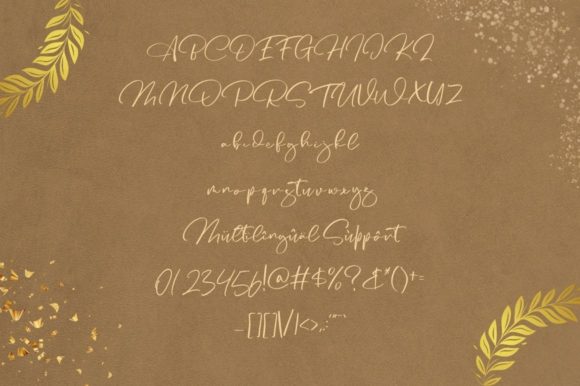 ABCDEFGHIJKL
MNOPQRSTUVWXYZ
abcdefghijkl
mnopqrstuvwxyz
Mültilîngûäl Sùppôrt
0123456!@#$%?&*()+=
_[][]\/|<>,.:;"'~`